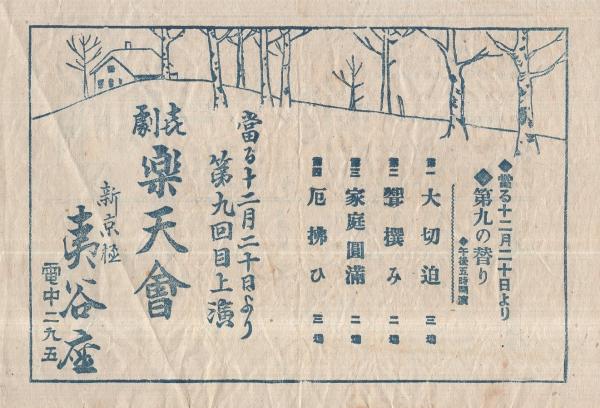 ◆當る十二月二十日より
◆第九の替り
◆午後五時開演
第一 大切迫 三場
第二 聟撰み 二場
第三 家庭圓滿 二場
第四 厄拂ひ 三場
當る十二月二十日より
第九回目上演
喜劇
楽天會
新京極
夷谷座
電中二九五